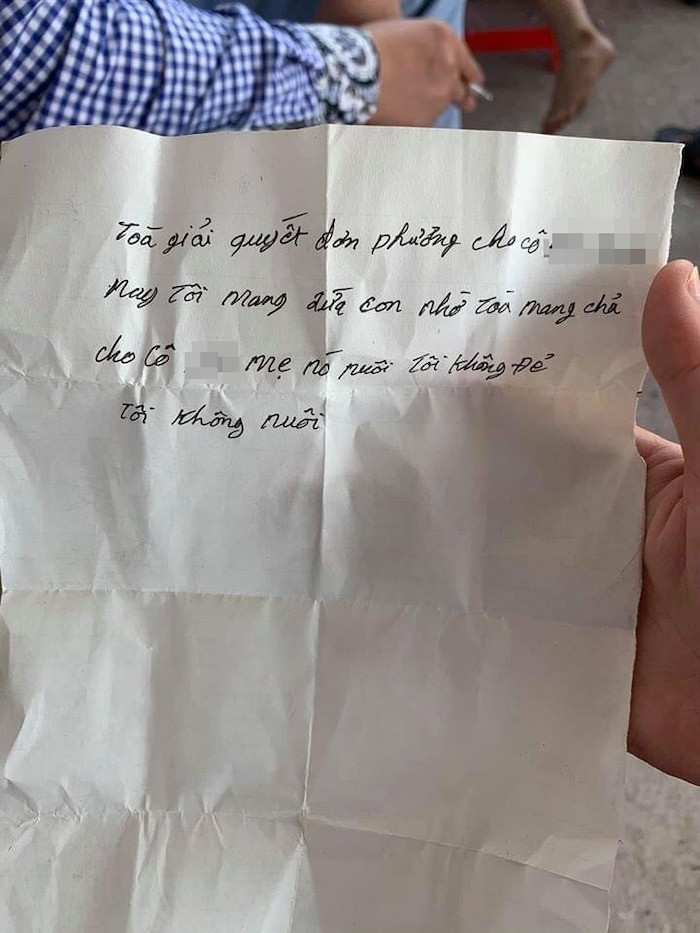 Toà giải quyết đơn phưởng cho cô
Nay Tôi mang đứa con nhờ toà mang chả
cho cô mẹ nó nuôi Tôi không Đẻ
Tôi không nuôi